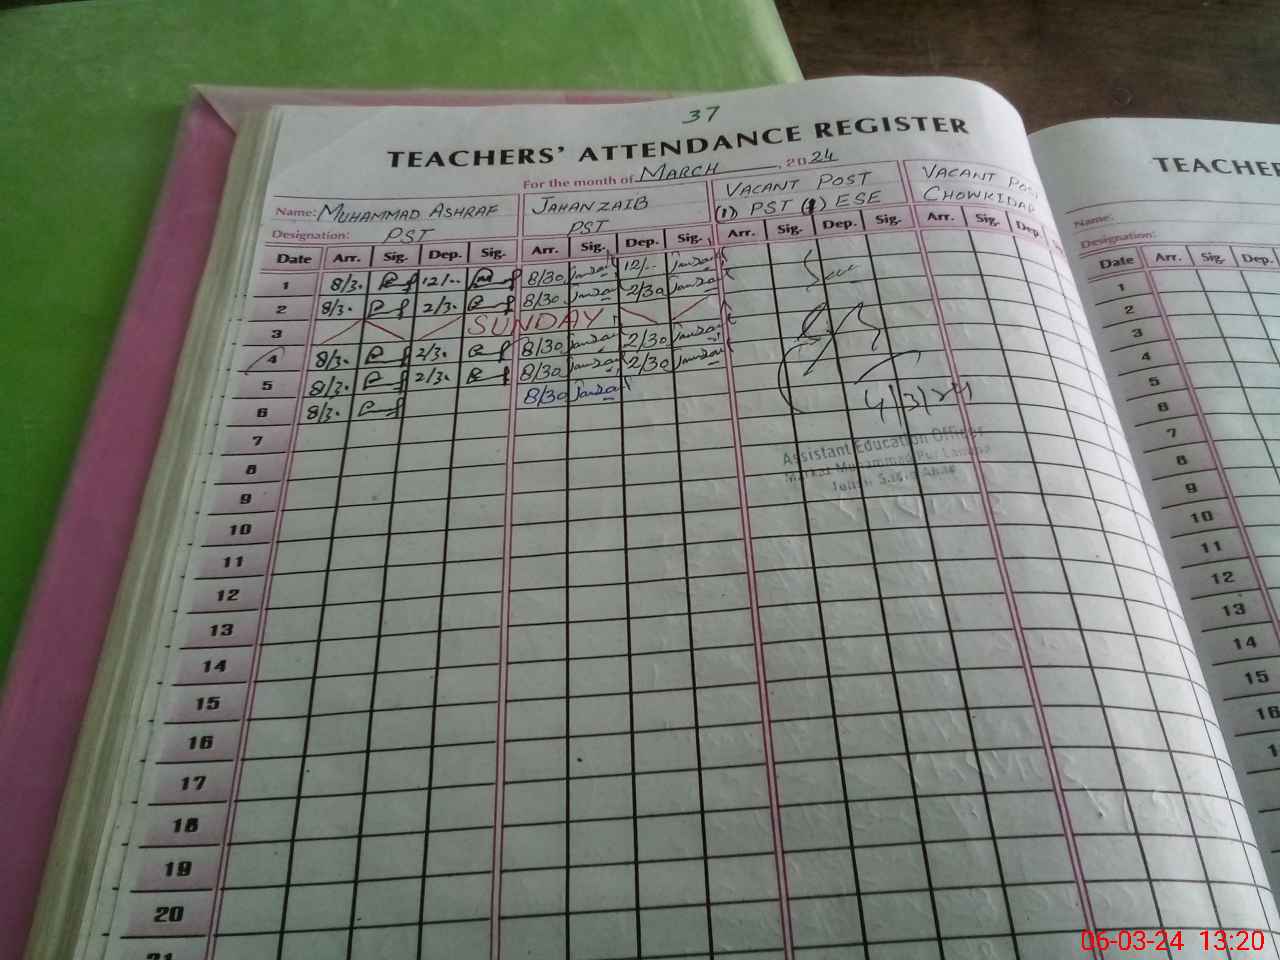 37
TEACHERS' ATTENDANCE REGISTER
For the month of MARCH, 2024
Name: MUHAMMAD ASHRAF JAHANZAIB VACANT POST VACANT POST
(1) PST (1) ESE CHOWKIDAR
Designation: PST PST
Date Arr. Sig. Dep. Sig. Arr. Sig. Dep. Sig. Arr. Sig. Dep. Sig. Arr. Sig. Dep.
1 8/3. 12/.. 8/30 12/..
2 8/3. 2/3. 8/30 2/30
3 SUNDAY
4 8/3. 2/3. 8/30 2/30
5 8/3. 2/3. 8/30 2/30
6 8/3. 8/30
4/3/24
7
8
Assistant Education Officer
Markaz Muhammad Pur
9
10
11
12
13
14
15
16
17
18
19
20
21
TEACHE
Name:
Designation:
Date Arr. Sig. Dep.
1
2
3
4
5
6
7
8
9
10
11
12
13
14
15
16
06-03-24 13:20